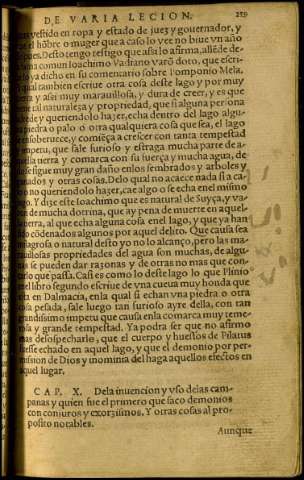 DE VARIA LECION. 259
vestido en ropa y estado de juez y governador, y
el hōbre o muger que a caso lo vee no biue vn año
pues. Desto tengo testigo que assi lo afirma, allēde de-
comun Ioachimo Vadiano varō doto, que escri-
ya dicho en su comentario sobre Pomponio Mela.
qual tambien escriue otra cosa deste lago y por muy
y assi muy marauillosa, y dura de creer, y es que
tal naturaleza y propriedad, que si alguna persona
rede y queriendolo hazer, echa dentro del lago algu-
piedra o palo o otra qualquiera cosa que sea, el lago
ensoberuece, y comiēça a crescer con tanta tempestad
impetu, que sale furioso y estraga mucha parte de a-
quella tierra y comarca con su fuerça y mucha agua, de
se sigue muy gran daño enlos sembrados y arboles y
ganados y otras cosas. Delo qual no acaece nada si a ca-
no queriendolo hazer, cae algo o se echa enel mismo
lago. Y dize este Ioachimo que es natural de Suyça, y va-
de mucha dotrina, que ay pena de muerte en aquel
tierra, al que echa alguna cosa enel lago, y que ya han
do cōdenados algunos por aquel delito. Que causa sea
milagrosa o natural desto yo no lo alcanço, pero las ma-
rauillosas propiedades del agua son muchas, de algu-
se pueden dar razones y de otras no mas que con-
que passa. Casi es como lo deste lago lo que Plinio
el libro segundo escriue de vna cueua muy honda que
en Dalmacia, enla qual si echan vna piedra o otra
cosa pesada, sale luego tan furioso ayre della, con tan
grandissimo impetu que causa enla comarca muy teme-
rosa y grande tempestad. Ya podra ser que no afirmo
mas desospecharlo, que el cuerpo y huessos de Pilatos
fuesse echado en aquel lago, y que el demonio por per-
mission de Dios y inominia del haga aquellos efectos en
aquel lugar.
CAP. X. Dela inuencion y vso delas cam-
panas y quien fue el primero que saco demonios
con conjuros y exorzismos. Y otras cosas al pro-
posito notables.
Aunque